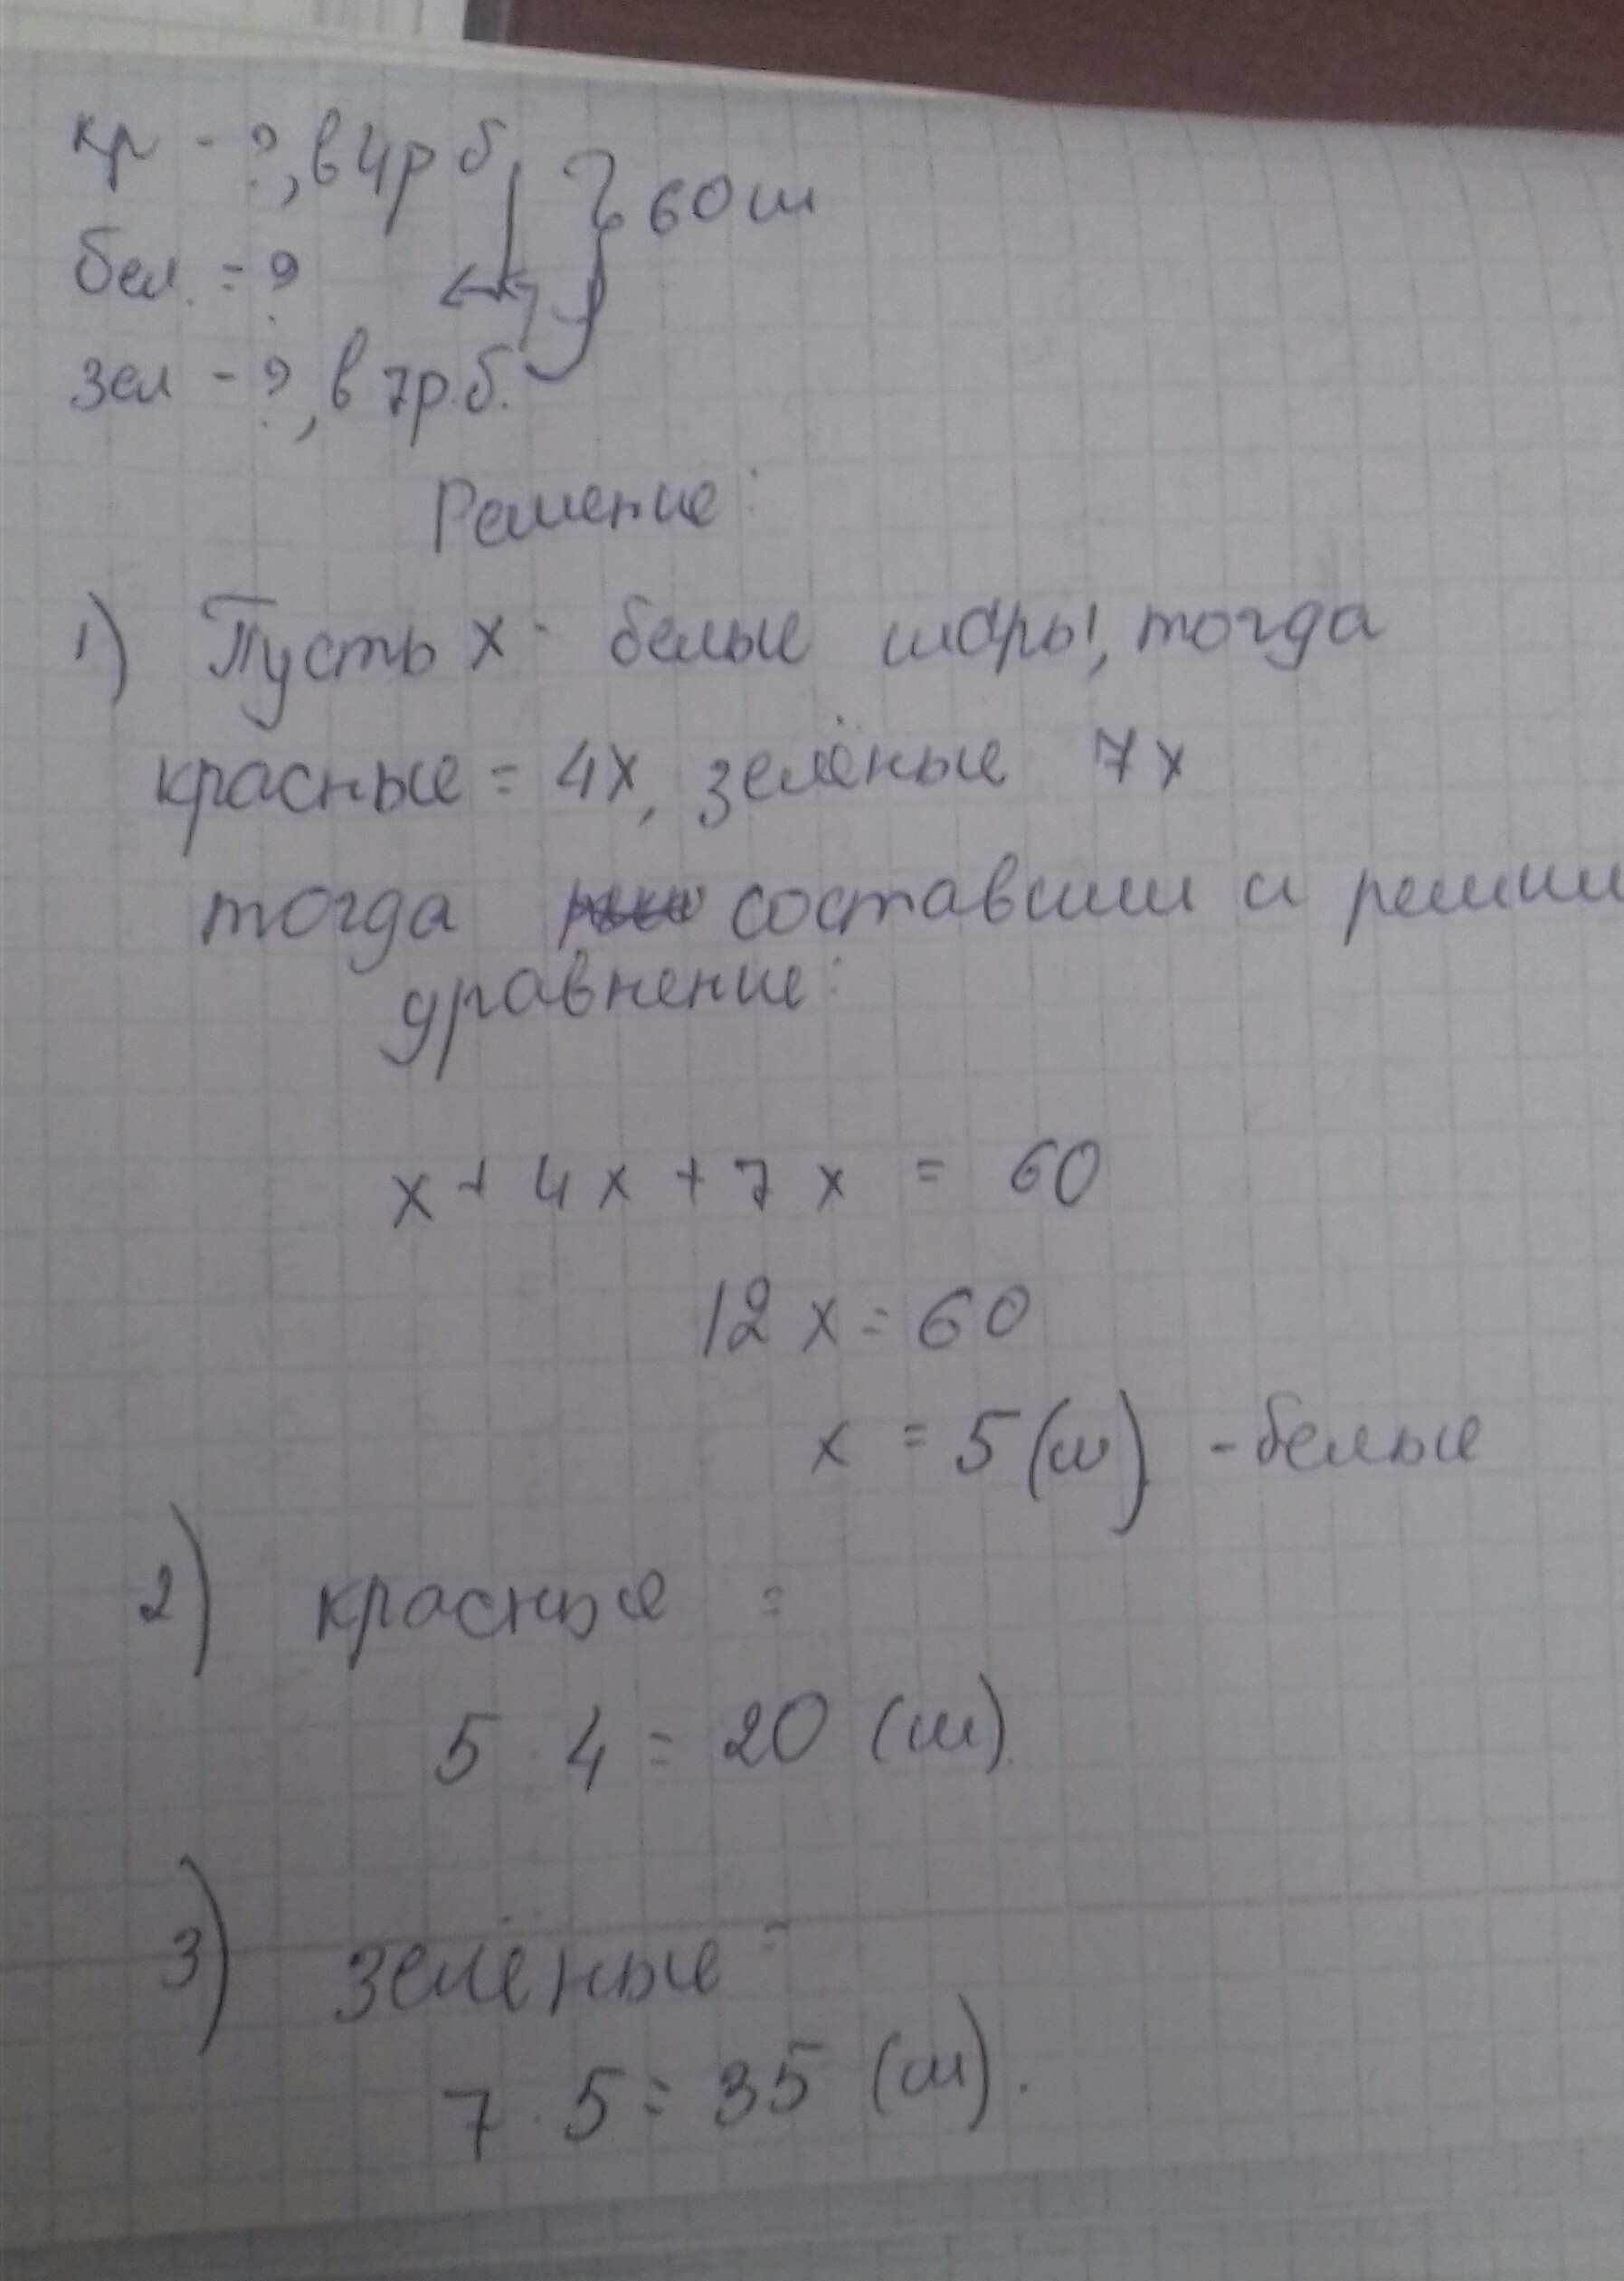 кр - ?, в 4 р б } 60 ш
бел. = ?
зел - ?, в 7 р. б.
Решение:
1) Пусть х - белые шары, тогда
красные = 4х, зелёные 7х
тогда составим и решим
уравнение:
х + 4х + 7х = 60
12х = 60
х = 5 (ш) - белые
2) красные =
5 · 4 = 20 (ш).
3) зелёные =
7 · 5 = 35 (ш).